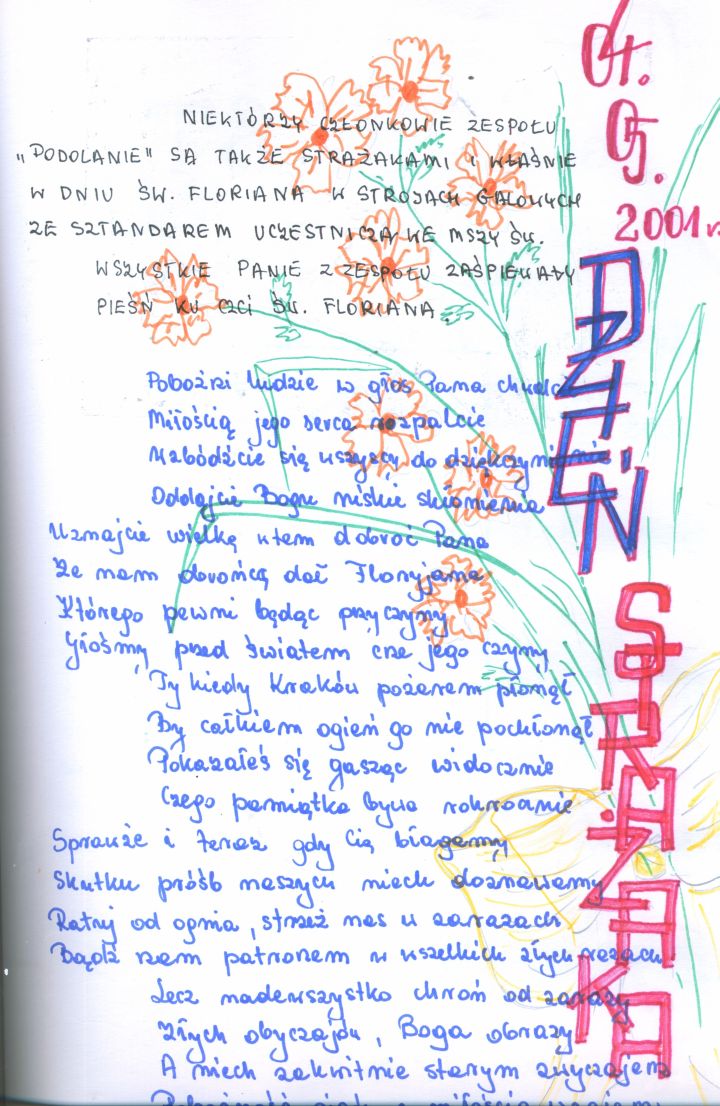 04.
05.
2001 r.
DZIEŃ STRAŻAKA
NIEKTÓRZY CZŁONKOWIE ZESPOŁU
„PODOLANIE" SĄ TAKŻE STRAŻAKAMI I WŁAŚNIE
W DNIU ŚW. FLORIANA W STROJACH GALOWYCH
ZE SZTANDAREM UCZESTNICZĄ WE MSZY ŚW.
WSZYSTKIE PANIE Z ZESPOŁU ZAŚPIEWAŁY
PIEŚŃ KU CZCI ŚW. FLORIANA
Pobożni ludzie w głos Pana chwalcie
Miłością jego serca rozpalcie
Wzbódźcie się wszyscy do dziękczynienia
Oddajcie Bogu niskie skłonienia
Uznajcie wielką w tem dobroć Pana
Że nam obrońcą dał Floryjana
Którego pewni będąc przyczyny
Głośmy przed światem cne jego czyny
Ty kiedy Kraków pożarem płonął
By całkiem ogień go nie pochłonął
Pokazałeś się gasząc widocznie
Czego pamiątka bywa rokrocznie
Sprawże i teraz gdy Cię błagamy
Skutku próśb naszych niech doznawamy
Ratuj od ognia, strzeż nas w zarazach
Bądź nam patronem w wszelkich złych razach
Lecz nadewszystko chroń od zarazy
Złych obyczajów, Boga obrazy
A niech zakwitnie starym zwyczajem